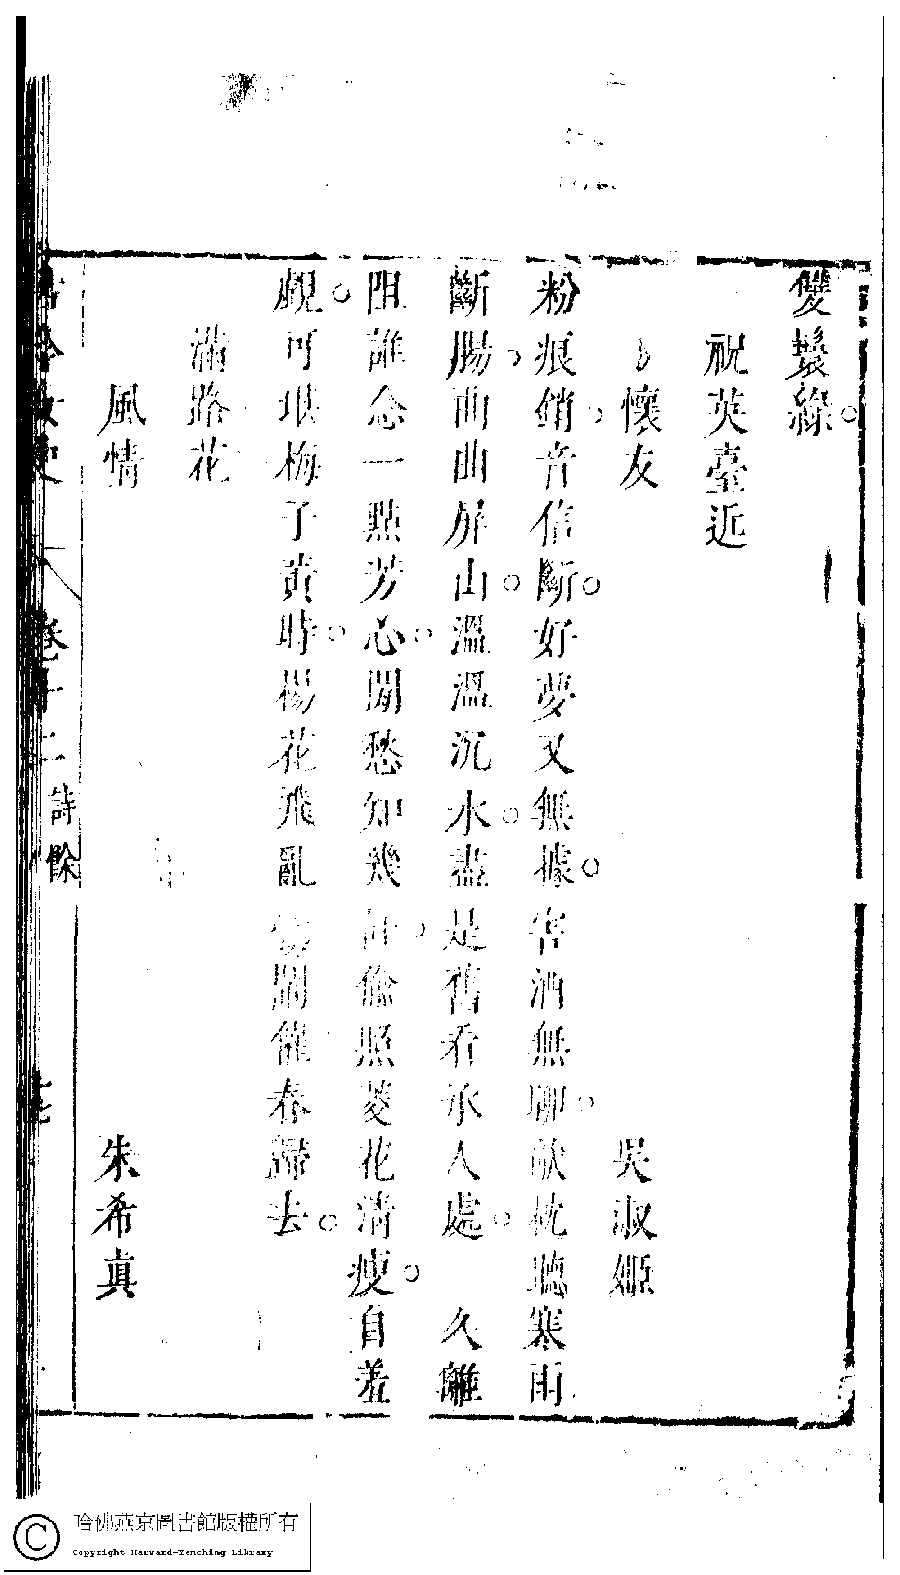 雙鬟綠
祝英臺近
懷友
吳淑姬
粉痕銷音信斷好夢又無據害酒無聊欹枕聽寒雨
斷腸曲曲屏山溫溫沉水盡是舊看承人處 久離
阻誰念一點芳心閒愁知幾許偷照菱花清瘦自羞
覷可堪梅子黃時楊花飛亂鬧催春歸去
滿路花
風情
朱希真
卷十二
詩餘
哈佛燕京圖書館版權所有
Copyright Harvard-Yenching Library